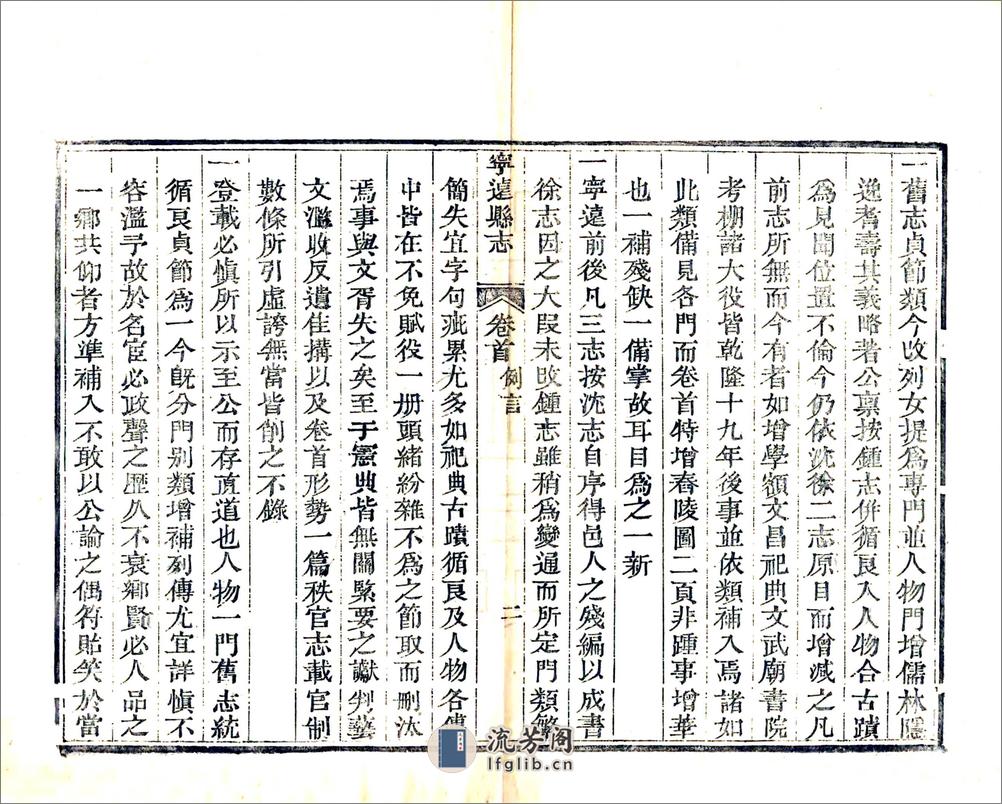 一舊志貞節類今改列女提爲專門並人物門增儒林隱
逸耆壽其義略者公稟按鍾志併循良入人物合古蹟
爲見聞位置不倫今仍依沈徐二志原目而增減之凡
前志所無而今有者如增學額文昌祀典文武廟書院
考棚諸大役皆乾隆十九年後事並依類補入焉諸如
此類備見各門而卷首特增舂陵圖二頁非踵事增華
也一補殘缺一備掌故耳目爲之一新
一寧遠前後凡三志按沈志自序得邑人之殘編以成書
徐志因之大段未改鍾志雖稍爲變通而所定門類繁
寧遠縣志
卷首 例言
二
簡失宜字句疵累尤多如祀典古蹟循良及人物各傳
中皆在不免賦役一册頭緒紛雜不爲之節取而刪汰
焉事與文胥失之矣至于憲典皆無關緊要之讞判藝
文濫收反遺佳搆以及卷首形勢一篇秩官志載官制
數條所引虛誇無當皆削之不錄
一登載必慎所以示至公而存直道也人物一門舊志統
循良貞節爲一今既分門別類增補列傳尤宜詳慎不
容濫予故於名宦必政聲之歷久不衰鄉賢必人品之
一鄉共仰者方準補入不敢以公論之偶符貽笑於當
流芳阁
lfglib.cn